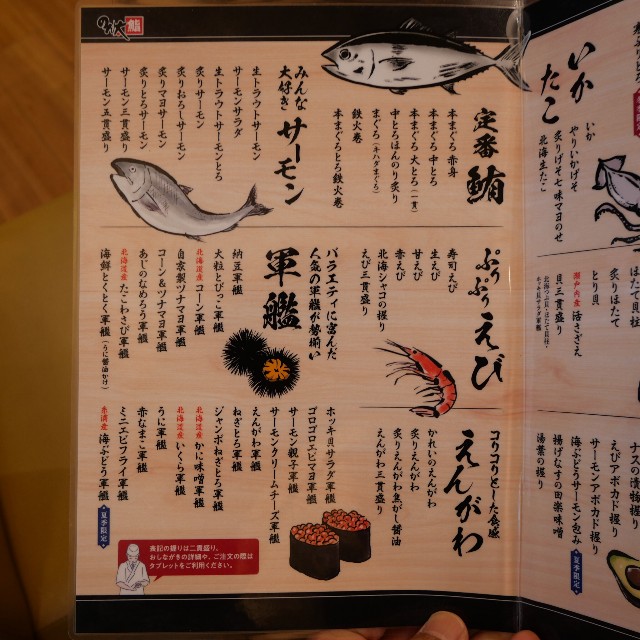 鮨
定番 鮪
本まぐろ 赤身
本まぐろ 中とろ
本まぐろ 大とろ(一貫)
中とろほんのり炙り
まぐろ(キハダまぐろ)
鉄火巻
本まぐろとろ鉄火巻
みんな大好き サーモン
生トラウトサーモン
サーモンサラダ
生トラウトサーモンとろ
炙りサーモン
炙りおろしサーモン
炙りマヨサーモン
炙りとろサーモン
サーモン三貫盛り
サーモン五貫盛り
ぷりぷり えび
寿司えび
生えび
甘えび
赤えび
北海シャコの握り
えび三貫盛り
軍艦
バラエティに富んだ
人気の軍艦が勢揃い
納豆軍艦
大粒とびっこ軍艦
北海道産 コーン軍艦
自家製ツナマヨ軍艦
コーン&ツナマヨ軍艦
あじのなめろう軍艦
北海道産 たこわさび軍艦
海鮮とくとく軍艦(うに醤油かけ)
コリコリとした食感
えんがわ
かれいのえんがわ
炙りえんがわ
炙りえんがわ焦がし醤油
えんがわ三貫盛り
ホッキ貝サラダ軍艦
ゴロゴロエビマヨ軍艦
サーモン親子軍艦
サーモンクリームチーズ軍艦
えんがわ軍艦
ねぎとろ軍艦
ジャンボねぎとろ軍艦
北海道産 かに味噌軍艦
北海道産 いくら軍艦
うに軍艦
赤なまこ軍艦
ミニエビフライ軍艦
海ぶどう軍艦 夏季限定
表記の握りは二貫盛り。
おしながきの詳細や、ご注文の際は
タブレットをご利用ください。
いか たこ
いか
やりいかげそ
炙りげそ七味マヨのせ
北海生たこ
はたて貝柱
炙りほたて
とり貝
瀬戸内産 活さざえ
貝三貫盛り
ナスの漬物握り
えびアボカド握り
サーモンアボカド握り
海ぶどうサーモン包み 夏季限定
揚げなすの田楽味噌
湯葉の握り